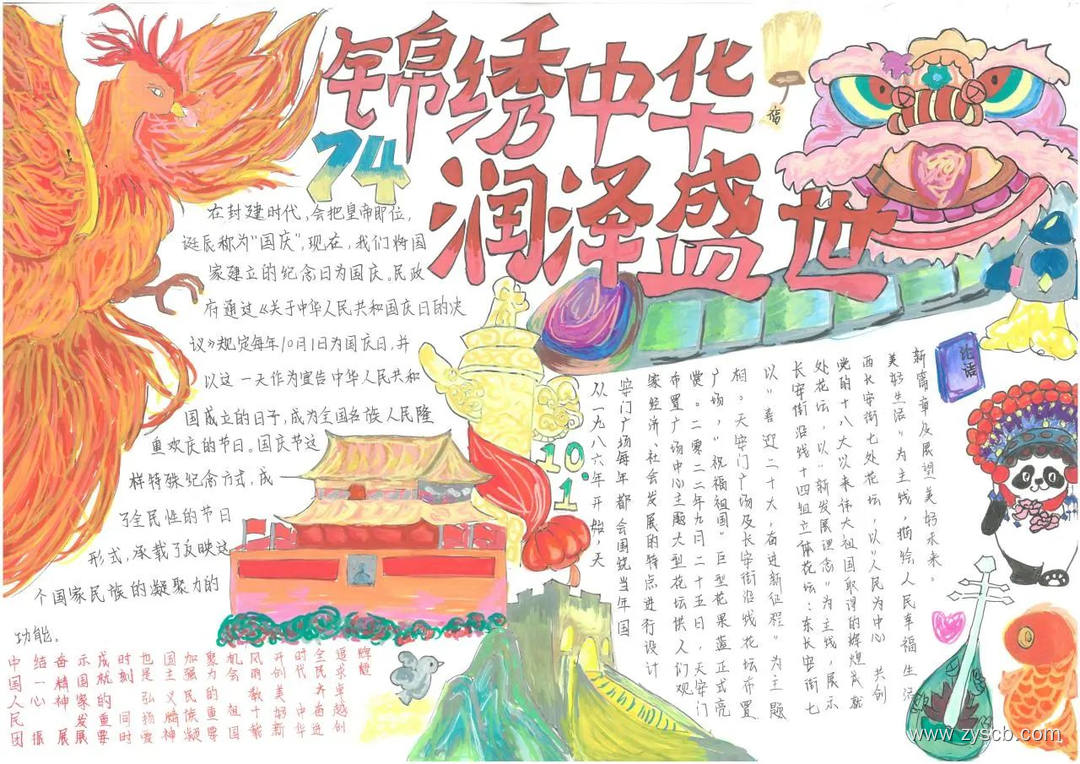 锦绣中华
润泽盛世
74
福
在封建时代,会把皇帝即位,
诞辰称为“国庆”,现在,我们将国
家建立的纪念日为国庆。民政
府通过《关于中华人民共和国国庆日的决
议》规定每年10月1日为国庆日,并
以这一天作为宣告中华人民共和
国成立的日子,成为全国各族人民隆
重欢庆的节日。国庆节这
样特殊纪念方式,成
了全民性的节日
形式,承载了反映这
个国家民族的凝聚力的
功能。
10.1
论语
从一九八六年开始,天
安门广场每年都会围绕当年国
家经济、社会发展的特点进行设计
布置广场中心主题大型花坛供人们观
赏。二零二二年九月二十五日,天安门
广场,“祝福祖国”巨型花果篮正式亮
相。天安门广场及长安街沿线花坛布置
以“喜迎二十大,奋进新征程”为主题
长安街沿线十四组立体花坛:东长安街七
处花坛,以“新发展理念”为主线,展示
党的十八大以来伟大祖国取得的辉煌成就
西长安街七处花坛,以“人民为中心 共创
美好生活”为主线,描绘人民幸福生活
新篇章及展望美好未来。
中国人民团
结一心振
奋精神发展
示国家重展
成就的同要
时刻 时
也是弘扬爱
国主义精神
加强民族凝
聚力的重要
机会 祖国
风雨载十载
开创美好新
时代 中华
全民齐奋进
求卓越创
www.zyscb.com